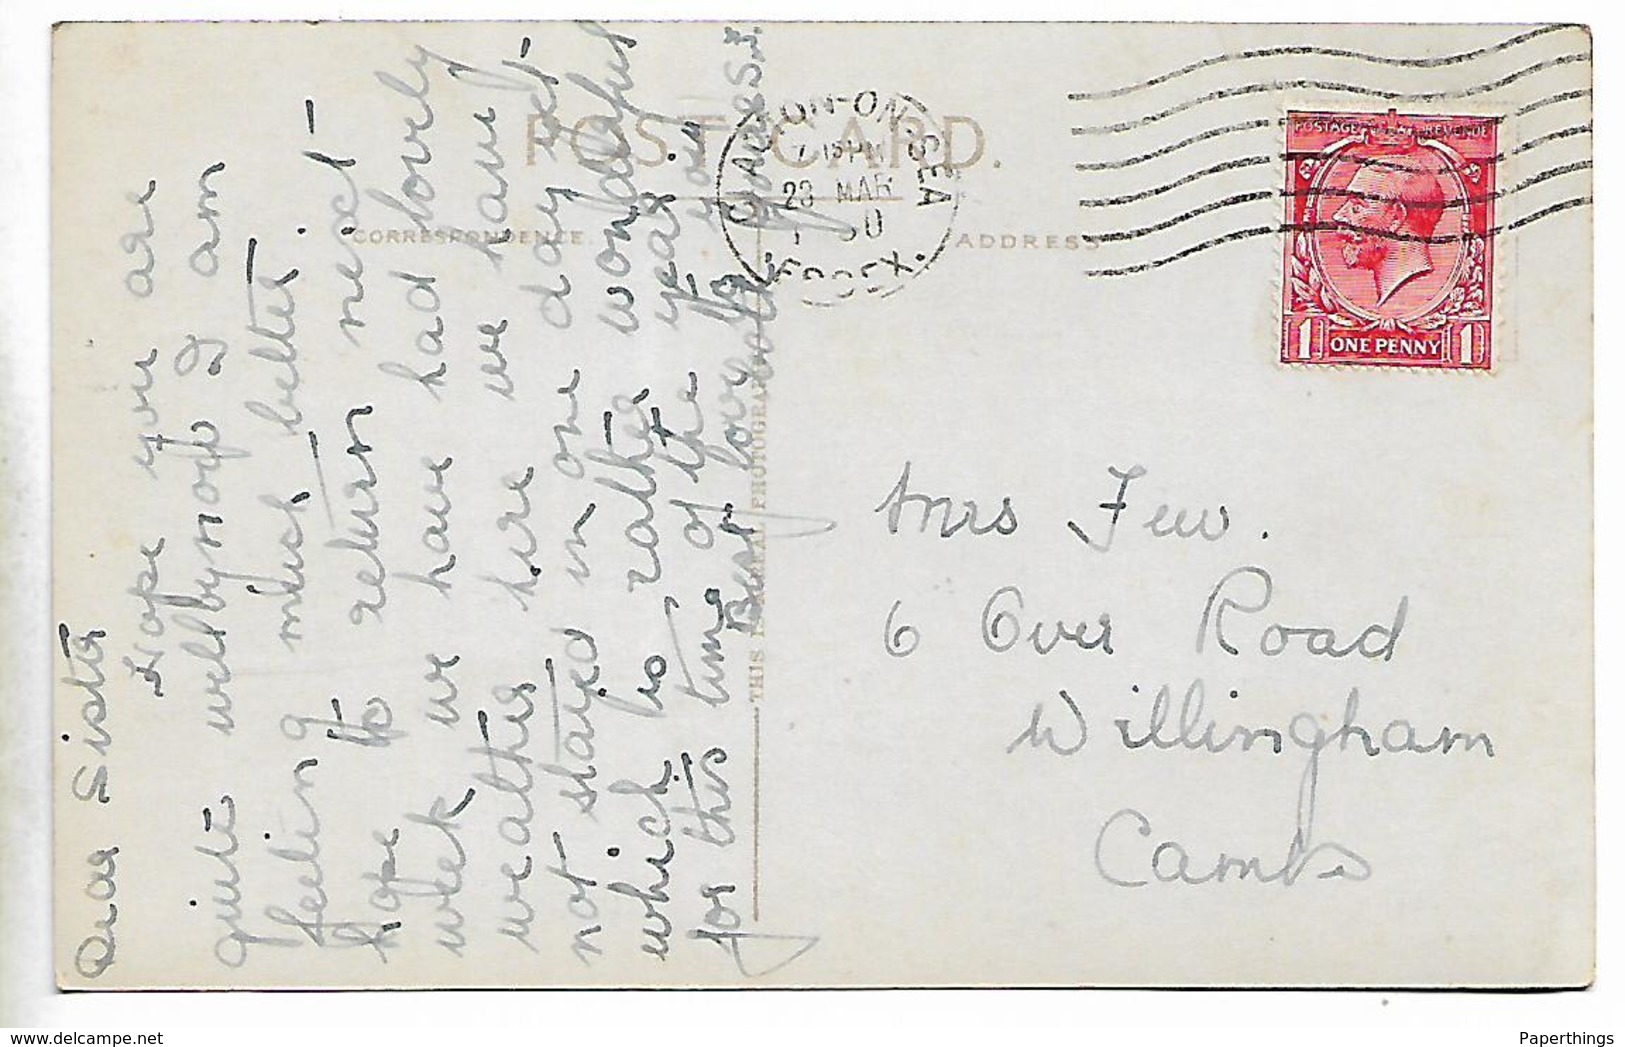 POST CARD.
CORRESPONDENCE.
ADDRESS
Dear Sister
Hope you are
quite well by now I am
feeling much better.
hope to return next –
week we have had lovely
weather here we have
not stayed in one day yet –
which is rather wonderful
for this time of the year.
Best love to you
both
THIS IS A REAL PHOTOGRAPH
CLACTON-ON-SEA
23 MAR
ESSEX.
POSTAGE REVENUE
1 ONE PENNY 1
Mrs Few.
6 Over Road
Willingham
Cambs
Paperthings